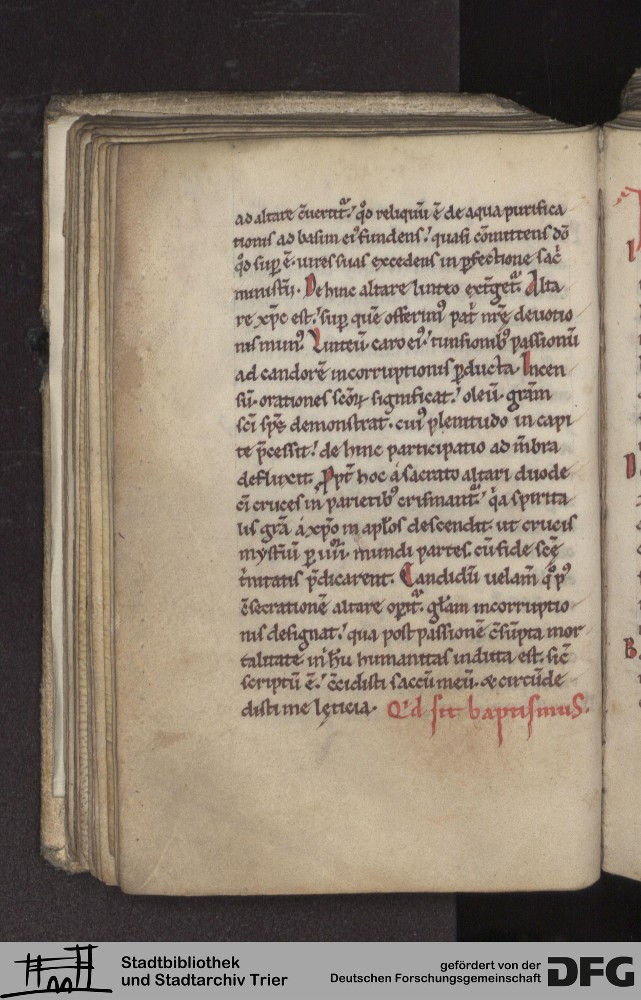 ad altare c̄uertit᷑. qͦd reliquū ē de aqua purifica
tionis ad basim eiꝰ fundens. quasi cōmittens dō
qͦd suꝑ ē. uires suas excedens in ꝑfectione sac̄
ministīi. De hinc altare linteo ext̄get᷑. Alta
re xp̄c est. suꝑ quē offerimꝰ pat̄ nr̄ę deuotio
nis munꝰ. Linteū caro eiꝰ. tunsionibꝰ passionū
ad candorē incorruptionis ꝑducta. Incen
sū. orationes sc̄oꝝ significat. oleū. grām
sc̄i sp̄s demonstrat. cuiꝰ plenitudo in capi
te p̄cessit. de hinc participatio ad m̄bra
defluxit. Ppt̄ hoc á sacrato altari duode
cī cruces in parietibꝰ crismant᷑. qͥa spirita
lis grā á xp̄o in ap̄los descendit. ut crucis
mystīū ꝑ iiii. mundi partes. cū fide sc̄ę
tͥnitatis p̄dicarent. Candidū uelam̄ qͦ pꝰ
c̄secrationē altare operit᷑. gl̄am incorruptio
nis designat. qua post passionē c̄sūpta mor
talitate in ih̄u humanitas induta est. sic̄
scriptū ē. c̄cidisti saccū meū. & circūde
disti me lęticia. Qͥd sit baptismus.
Stadtbibliothek
und Stadtarchiv Trier
gefördert von der
Deutschen Forschungsgemeinschaft
DFG